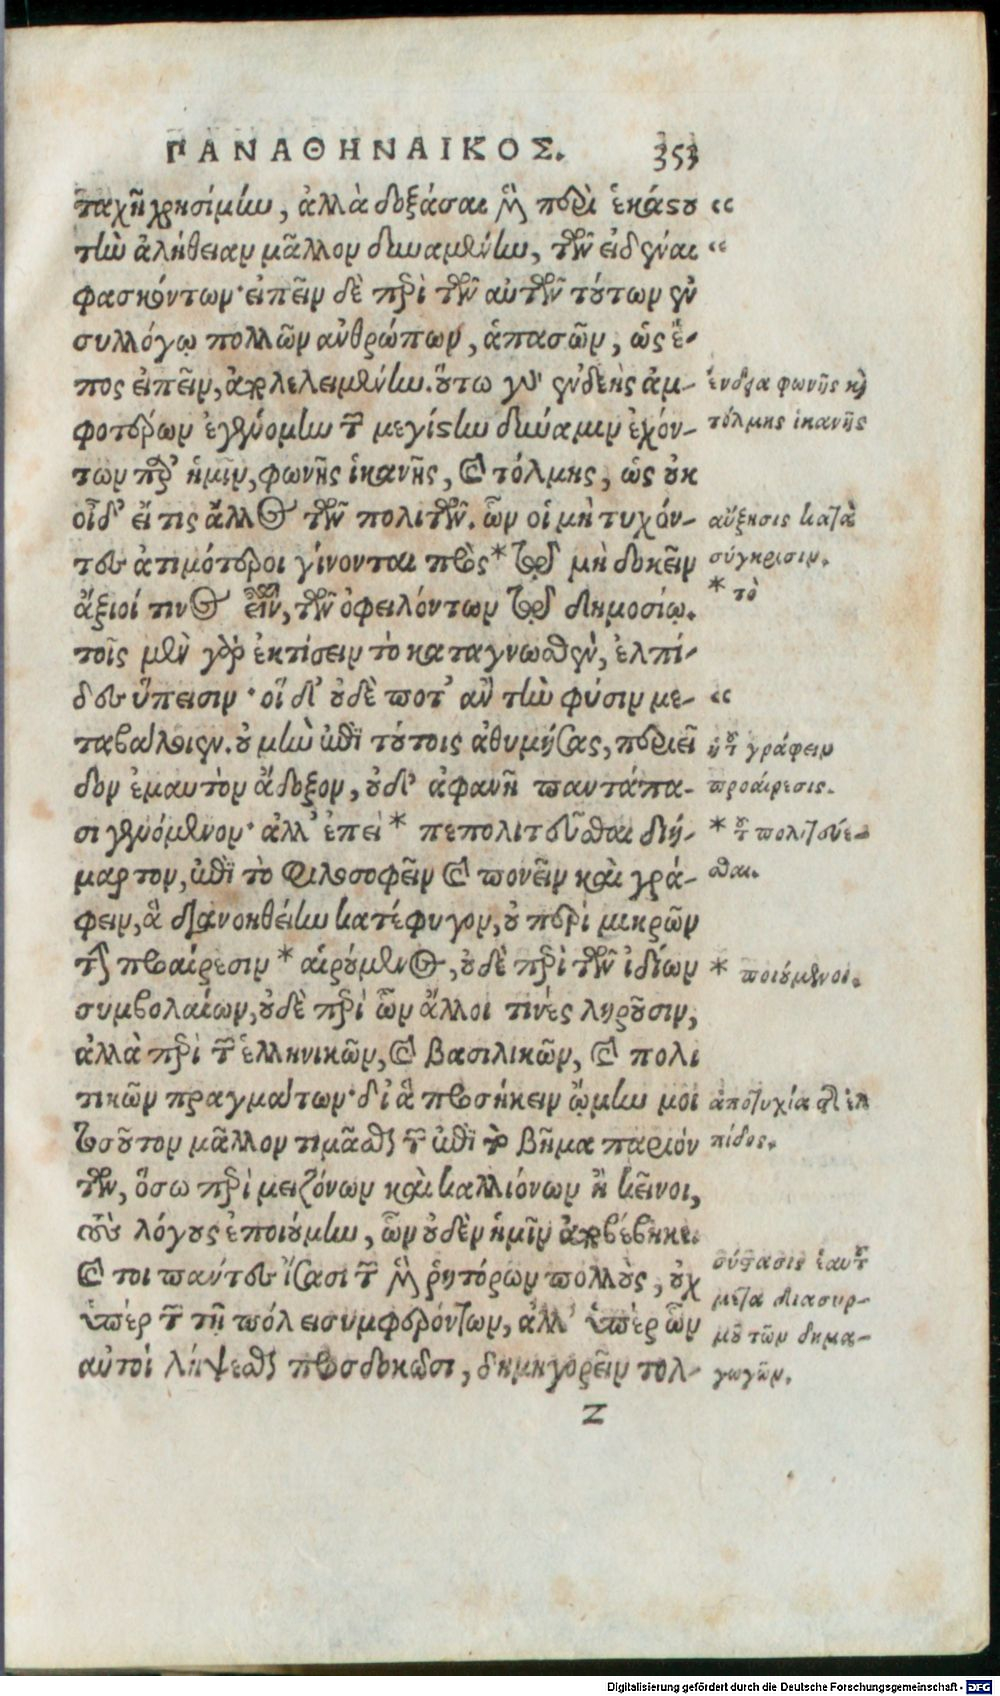 ΠΑΝΑΘΗΝΑΙΚΟΣ. 353
ταχῆ χρησίμην, ἀλλὰ δοξάσαι μὲν περὶ ἑκάστου “
τὴν ἀλήθειαν μᾶλλον δυναμένην, τῶν εἰδέναι “
φασκόντων· εἰπεῖν δὲ περὶ τῶν αὐτῶν τούτων ἐν
συλλόγῳ πολλῶν ἀνθρώπων, ἁπασῶν, ὡς ἔ-
πος εἰπεῖν, ἀπολελειμμένην. οὕτω γὰρ ἐνδεὴς ἀμ-
φοτέρων ἐγενόμην τῶν μεγίστην δύναμιν ἐχόν-
των παρ’ ἡμῖν, φωνῆς ἱκανῆς, καὶ τόλμης, ὡς οὐκ
οἶδ’ εἴ τις ἄλλος τῶν πολιτῶν. ὧν οἱ μὴ τυχόν-
τες ἀτιμότεροι γίνονται πρὸς * τοῦ μὴ δοκεῖν
ἄξιοί τινος εἶναι, τῶν ὀφειλόντων τῷ δημοσίῳ.
τοῖς μὲν γὰρ ἐκτίσειν τὸ καταγνωσθὲν, ἐλπί-
δες ὕπεισιν· οἳ δ’ οὐδέποτ’ ἂν τὴν φύσιν με- “
ταβάλοιεν. οὐ μὴν ἐπὶ τούτοις ἀθυμήσας, περιεῖ
δον ἐμαυτὸν ἄδοξον, οὐδ’ ἀφανῆ παντάπα-
σι γενόμενον· ἀλλ’ ἐπεὶ * πεπολιτεῦσθαι διή-
μαρτον, ἐπὶ τὸ φιλοσοφεῖν καὶ πονεῖν καὶ γρά-
φειν, ἃ διανοηθείην κατέφυγον, οὐ περὶ μικρῶν
τὴν προαίρεσιν * αἱρούμενος, οὐδὲ περὶ τῶν ἰδίων
συμβολαίων, οὐδὲ περὶ ὧν ἄλλοι τινὲς ληροῦσιν,
ἀλλὰ περὶ τῶν ἑλληνικῶν, καὶ βασιλικῶν, καὶ πολι
τικῶν πραγμάτων· δι’ ἃ προσήκειν ᾤμην μοι
τοσοῦτον μᾶλλον τιμᾶσθαι τῶν ἐπὶ τὸ βῆμα παριόν
των, ὅσῳ περὶ μειζόνων καὶ καλλιόνων ἢ κεῖνοι,
τοὺς λόγους ἐποιούμην, ὧν οὐδὲν ἡμῖν ἀποβέβηκε.
καὶ τοι πάντες ἴσασι τῶν μὲν ῥητόρων πολλοὺς, οὐχ
ὑπὲρ τῶν τῇ πόλει συμφερόντων, ἀλλ’ ὑπὲρ ὧν
αὐτοὶ λήψεσθαι προσδοκῶσι, δημηγορεῖν τολ-
Z
ἔνδεια φωνῆς καὶ
τόλμης ἱκανῆς
αὔξησις κατὰ
σύγκρισιν.
* τὸ
ἡ τοῦ γράφειν
προαίρεσις.
* τοῦ πολιτεύε-
σθαι.
* ποιούμενοι.
ἀποτυχία τῆς ἐλ
πίδος.
σύστασις ἑαυτοῦ
μετὰ διασυρ-
μοῦ τῶν δημα-
γωγῶν.
Digitalisierung gefördert durch die Deutsche Forschungsgemeinschaft - DFG